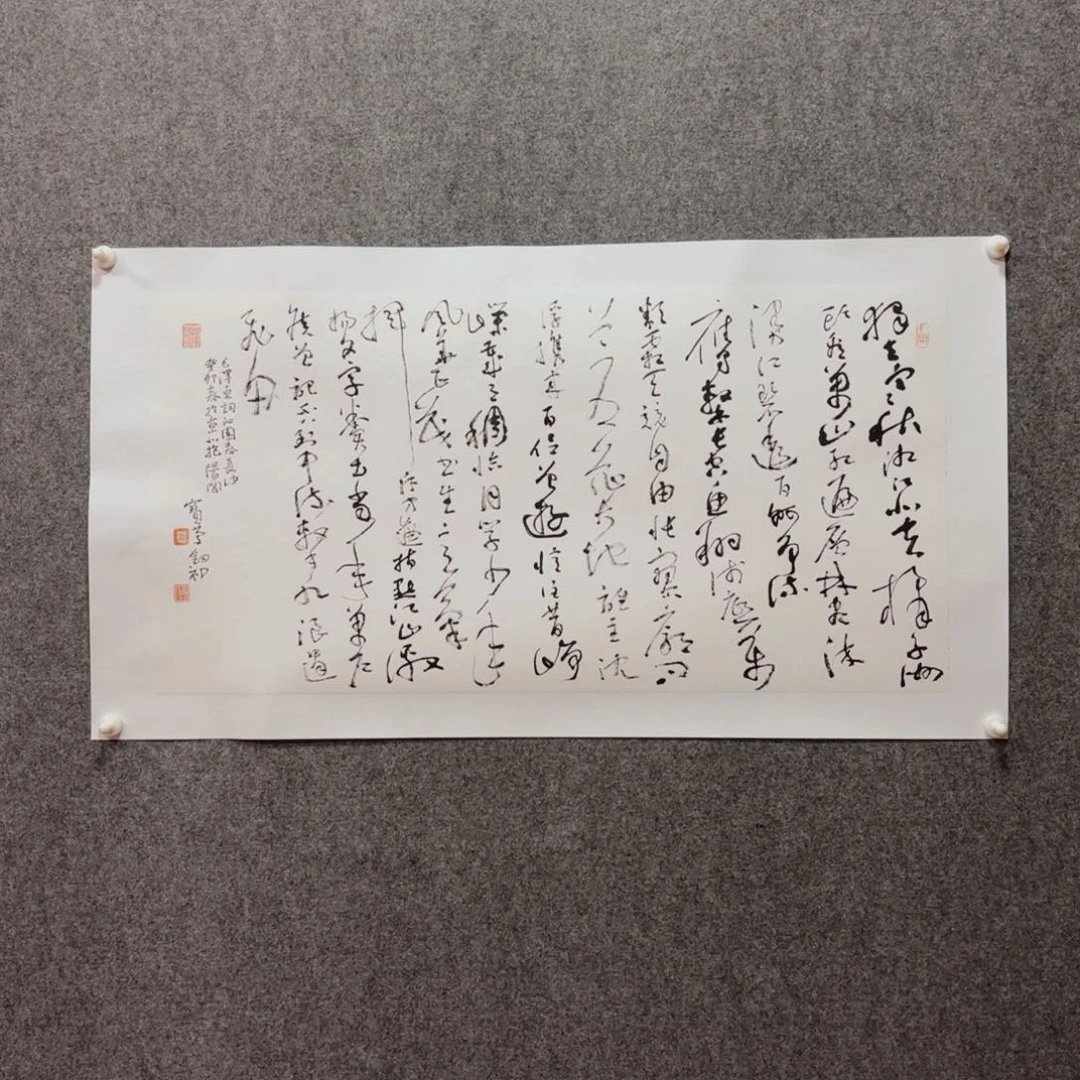 獨立寒秋湘江北去橘子洲
頭看萬山紅遍層林盡染
漫江碧透百舸爭流
鷹擊長空魚翔淺底萬
類霜天競自由悵寥廓問
蒼茫大地誰主沉
浮攜來百侶曾遊憶往昔崢
嶸歲月稠恰同學少年
風華正茂書生意氣
揮斥方遒指點江山激
揚文字糞土當年萬戶
侯曾記否到中流擊水浪遏
飛舟
毛澤東詞沁園春長沙